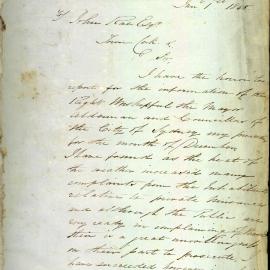 Jany 1st 1845
To John Rae Esqr
Town Clk &c
Sir
I have the honor to
report for the information of the
Right Worshipful the Mayor
Aldermen and Councillors of
the City of Sydney my
for the month of December
I have found as the heat of
the weather increased many
complaints from the inhabitants
relative to private nuisances
and although the
very ready in complaining of them
there is a great unwillingness
on their part to prosecute
have succeeded however